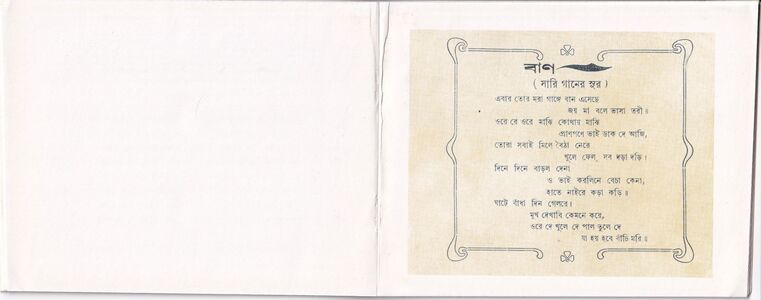 বাণ
( সারি গানের সুর )
এবার তোর মরা গাঙ্গে বান এসেছে
জয় মা বলে ভাসা তরী॥
ওরে রে ওরে মাঝি কোথায় মাঝি
প্রাণপণে ভাই ডাক দে আজি,
তোরা সবাই মিলে বৈঠা নেরে
খুলে ফেল, সব দড়া দড়ি।
দিনে দিনে বাড়ল দেনা
ও ভাই করলিনে বেচা কেনা,
হাতে নাইরে কড়া কড়ি॥
ঘাটে বাঁধা দিন গেলরে।
মুখ দেখাবি কেমনে করে,
ওরে দে খুলে দে পাল তুলে দে
যা হয় হবে বাঁচি মরি॥